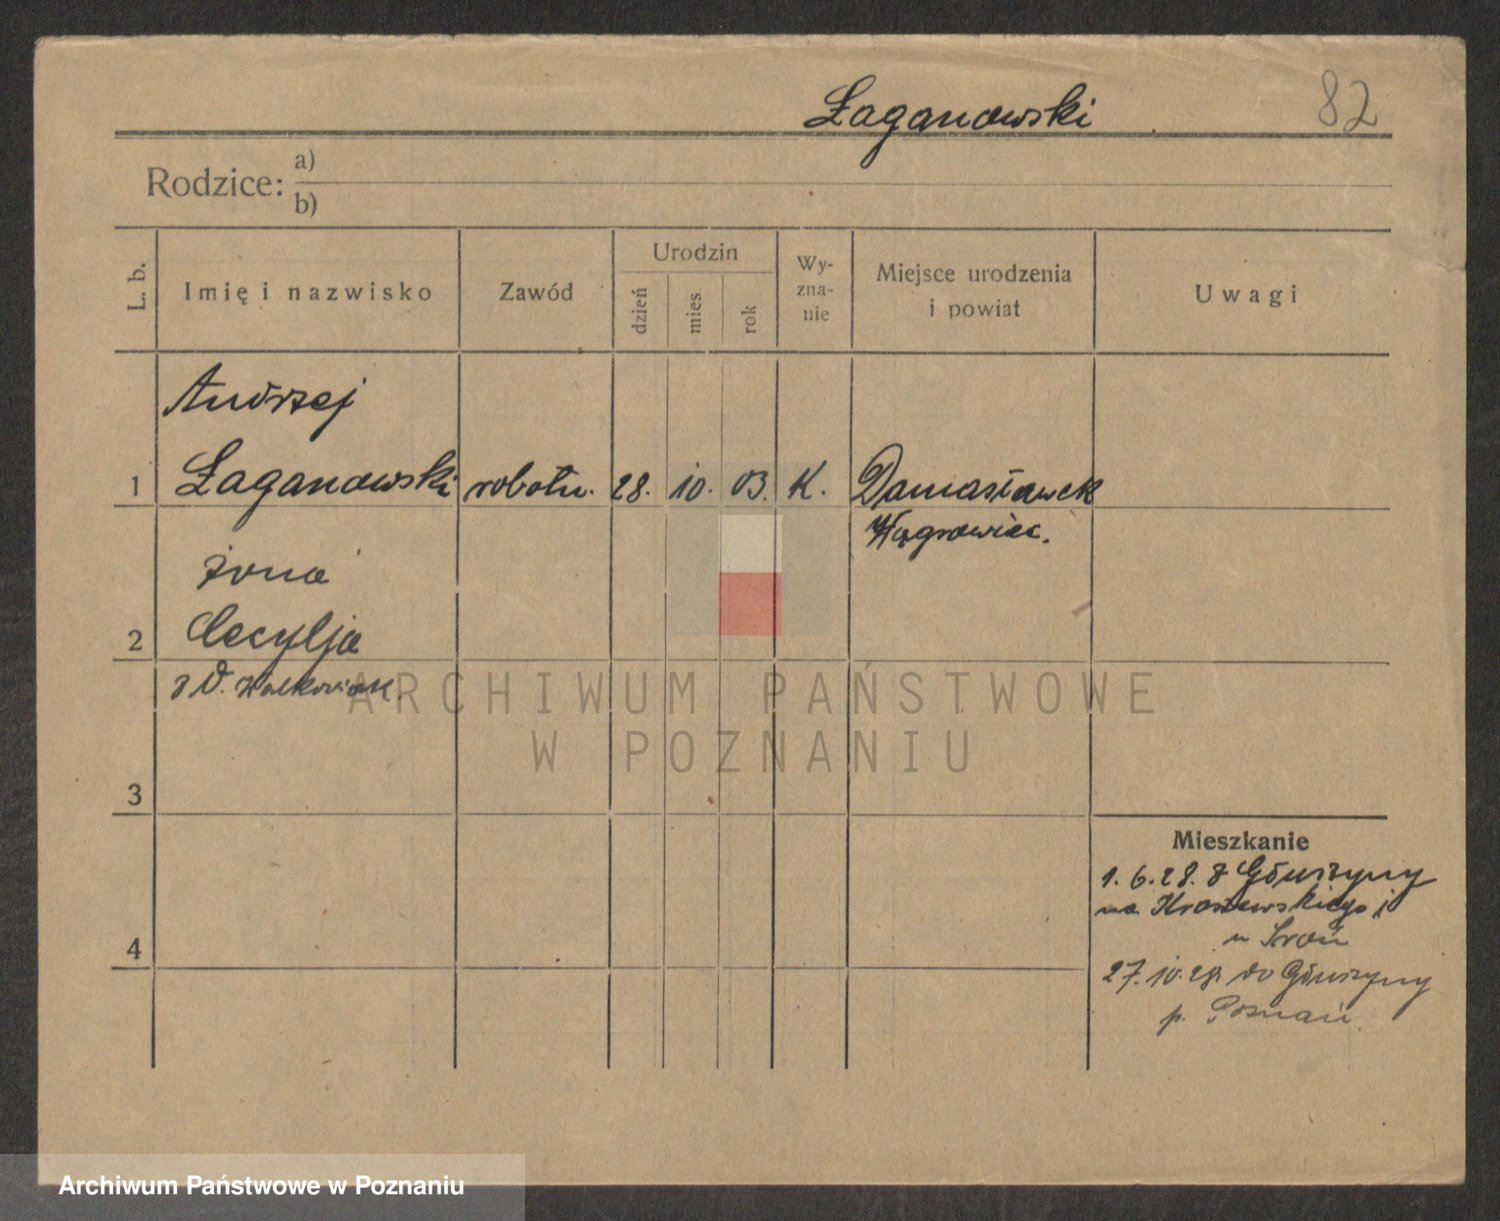 Łaganowski 82
Rodzice: a)
b)
L. b. Imię i nazwisko Zawód Urodzin dzień mies rok Wy-zna-nie Miejsce urodzenia i powiat Uwagi
Andrzej
1 Łaganowski robotn. 28. 10. 03. K. Damasławek
Wągrowiec.
żona
2 Cecylja
z d. Walkowiak
ARCHIWUM PAŃSTWOWE
W POZNANIU
3
Mieszkanie
1.6.28. z Głuszyny
na Kraszewskiego
4
27.10.28. do Głuszyny
p. Poznań.
Archiwum Państwowe w Poznaniu